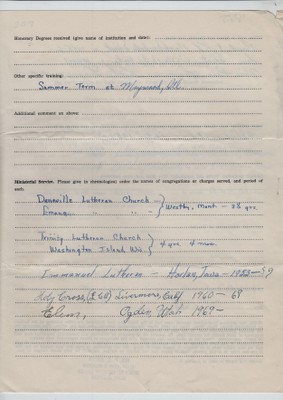 Honorary Degrees received (give name of institution and date):
Other specific training:
Summer Term at Maywood, Ill.
Additional comment on above:
Ministerial Service. Please give in chronological order the names of congregations or charges served, and period of each
Daneville Lutheran Church
Emmaus " "
Westby, Mont - 2½ yrs.
Trinity Lutheran Church
Washington Island Wis.
4 yrs. 4 mos.
Immanuel Lutheran - Harlan, Iowa - 1953-59
Holy Cross, Livermore, Calif 1960-69
Elim, Ogden, Utah 1969-